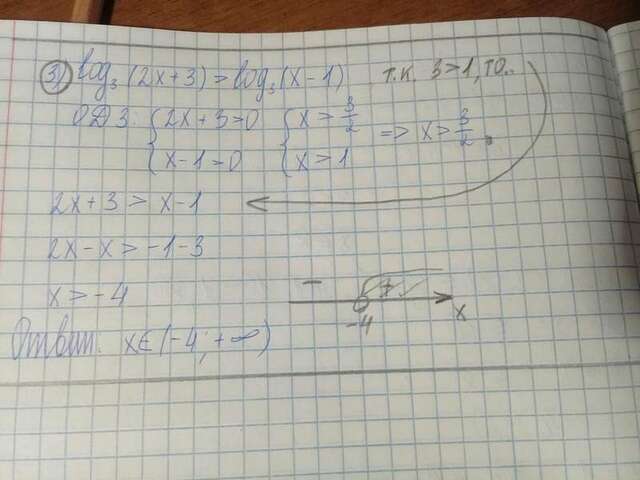 3) log₃(2x+3) > log₃(x-1) т.к. 3>1, то..
ОДЗ: { 2x+3>0 { x > 3/2 => x > 3/2.
{ x-1>0 { x > 1
2x+3 > x-1
2x-x > -1-3
x > -4
− +
-4 x
Ответ: x∈(-4; +∞)